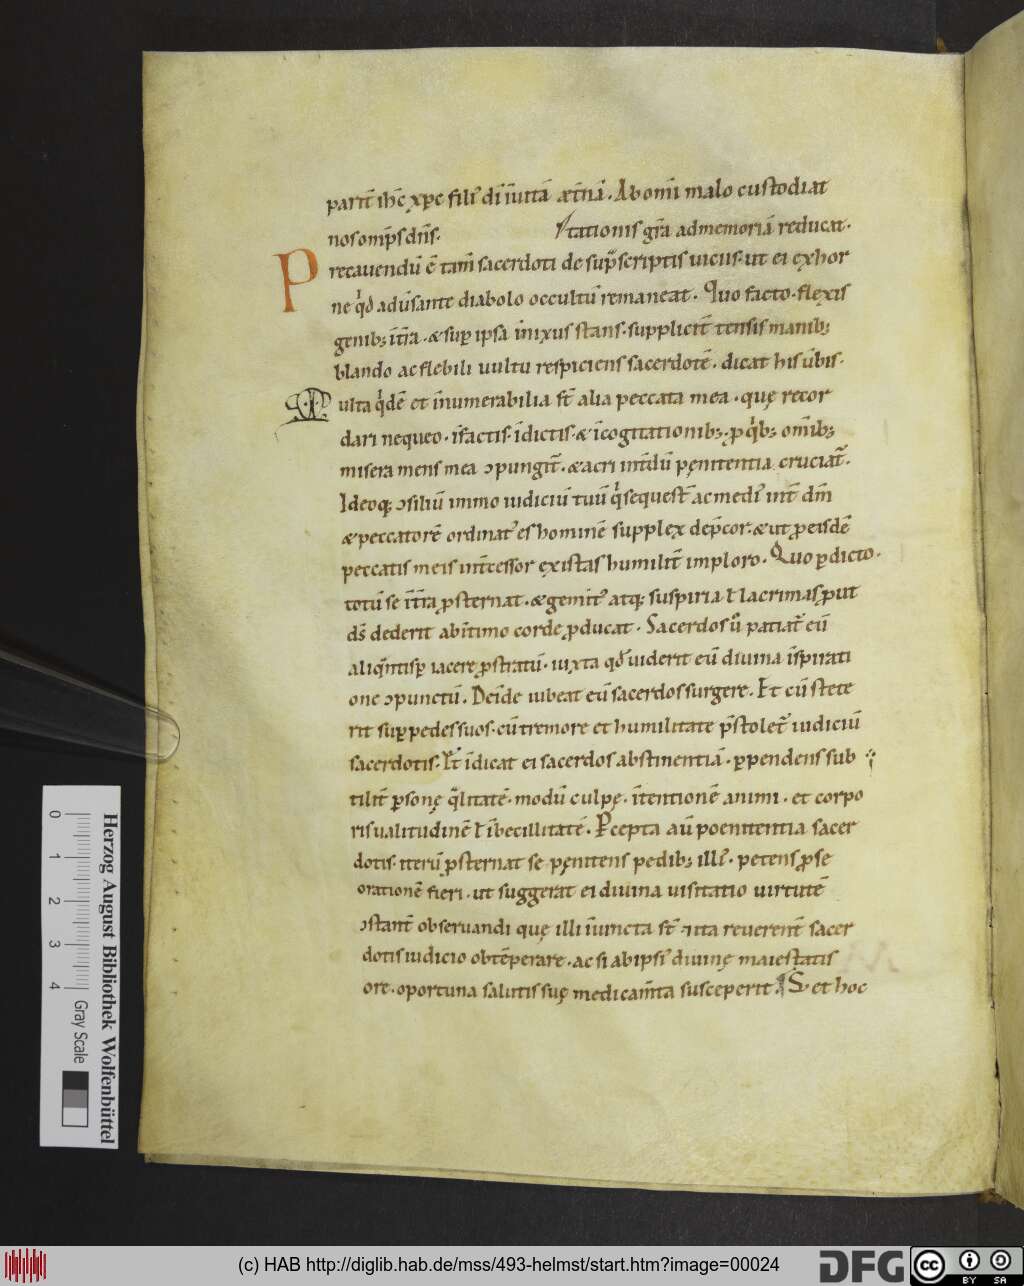 partit̄ ih̄c xp̄c fili' dī ī uitā æt̄nā. Ab omī malo custodiat
nos omīps dn̄s. /tationis gr̄a ad memoriā reducat.
Precauendū ē tam̄ sacerdoti de sup̄scriptis uiciis. ut ei exhor
ne qd̄ adiuuante diabolo occultū remaneat. Quo facto. flexis
genib; ī tr̄a. & sup ipsā īnixus stans. supplicit̄ tensis manib;
blando ac flebili uultu respiciens sacerdotē. dicat his ūbis.
Multa qi̇dē et īnumerabilia st̄ alia peccata mea. quę recor
dari nequeo. ī factis. ī dictis. & ī cogitationib;. p qi̇b; omīb;
misera mens mea ↄpungit̄. & acri int̄dū pęnitentia cruciat̄.
Ideoq; ↄsiliū immo iudiciū tuū qi̇ sequest̄ ac medi' int̄ dm̄
& peccatorē ordinat' es hominē supplex dep̄cor. & ut p eisdē
peccatis meis int̄cessor existas humilit̄ imploro. Quo p dicto.
totū se ī tr̄a psternat. & gemit' atq; suspiria ł lacrimas put
ds̄ dederit ab ītimo corde pducat. Sacerdos ū patiat̄ eū
aliqn̄tisp iacere pstratū. iuxta qd̄ uiderit eū diuina īspirati
one ↄpunctū. Deīde iubeat eū sacerdos surgere. Et cū stete
rit sup pedes suos. cū tremore et humilitate p̄stolet̄ iudiciū
sacerdotis. Et īdicat ei sacerdos abstinentiā. p pendens sub
tilit̄ psonę qlitatē. modū culpę. ītentionē animi. et corpo
ris ualitudinē ł ībecillitatē. Pcepta aū poenitentia sacer
dotis. iterū psternat se pęnitens pedib; illi'. petens p se
orationē fieri. ut suggerat ei diuina uisitatio uirtutē
ↄstant̄ obseruandi quę illi īiuncta st̄ ⁊ ita reuerent̄ sacer
dotis iudicio obtēperare. ac si ab ipsi' diuinę maiestatis
ore. oportuna salutis suę medicam̄ta susceperit. S; et hoc
0 1 2 3 4
Herzog August Bibliothek Wolfenbüttel
Gray Scale
(c) HAB http://diglib.hab.de/mss/493-helmst/start.htm?image=00024
DFG
cc BY SA